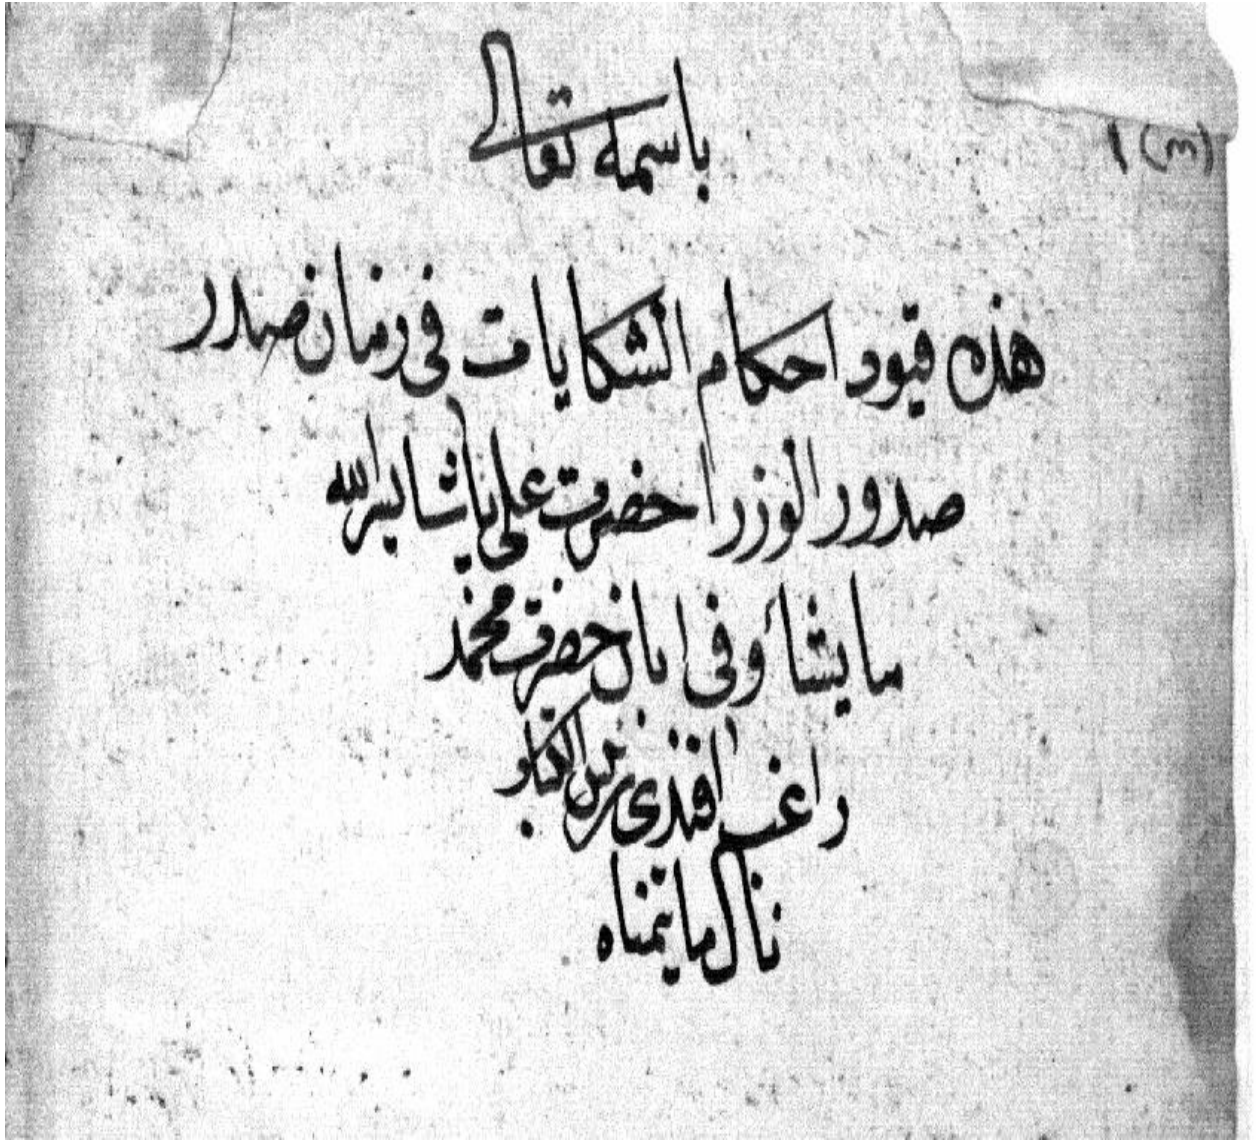 باسمه تعالى
(٣) ١
هذه قيود احكام الشكايات فى زمان صدر
صدور الوزرا حضرت على پاشا يسر الله
ما يشاء وفى ابان حضرت محمد
راغب افندى رئيس الكتاب
نال ما يتمناه